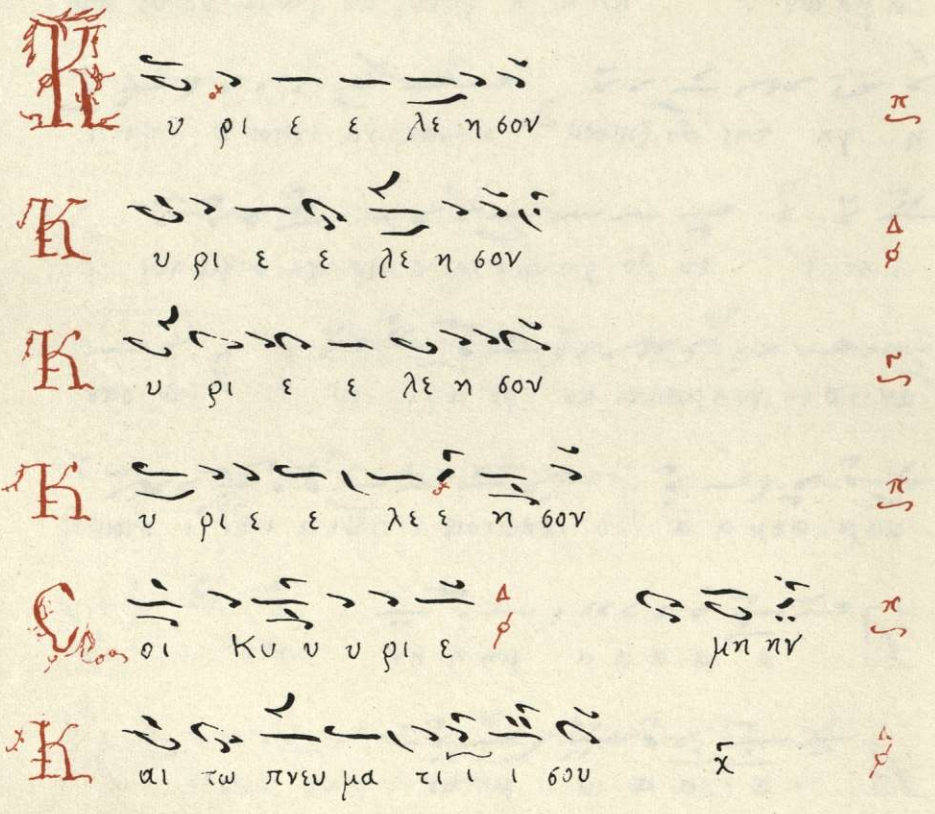 Κ υ ρι ε ε λε η σον π
Κ υ ρι ε ε λε η σον Δ
Κ υ ρι ε ε λε η σον
Κ υ ρι ε ε λε ε η σον π
Σ οι Κυ υ υ ρι ε Δ μη ην
Κ αι τω πνευ μα τι ι ι σου